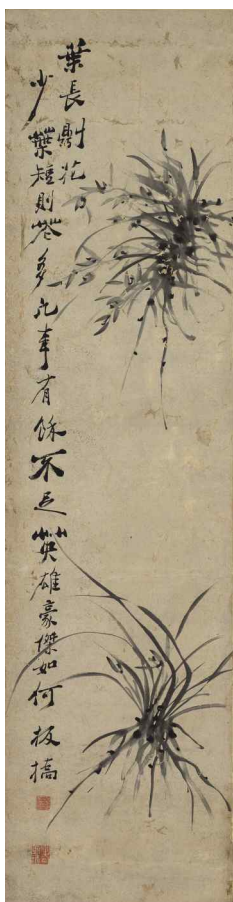 葉長則花
少葉短則花多凡事有餘不足英雄豪傑如何板橋